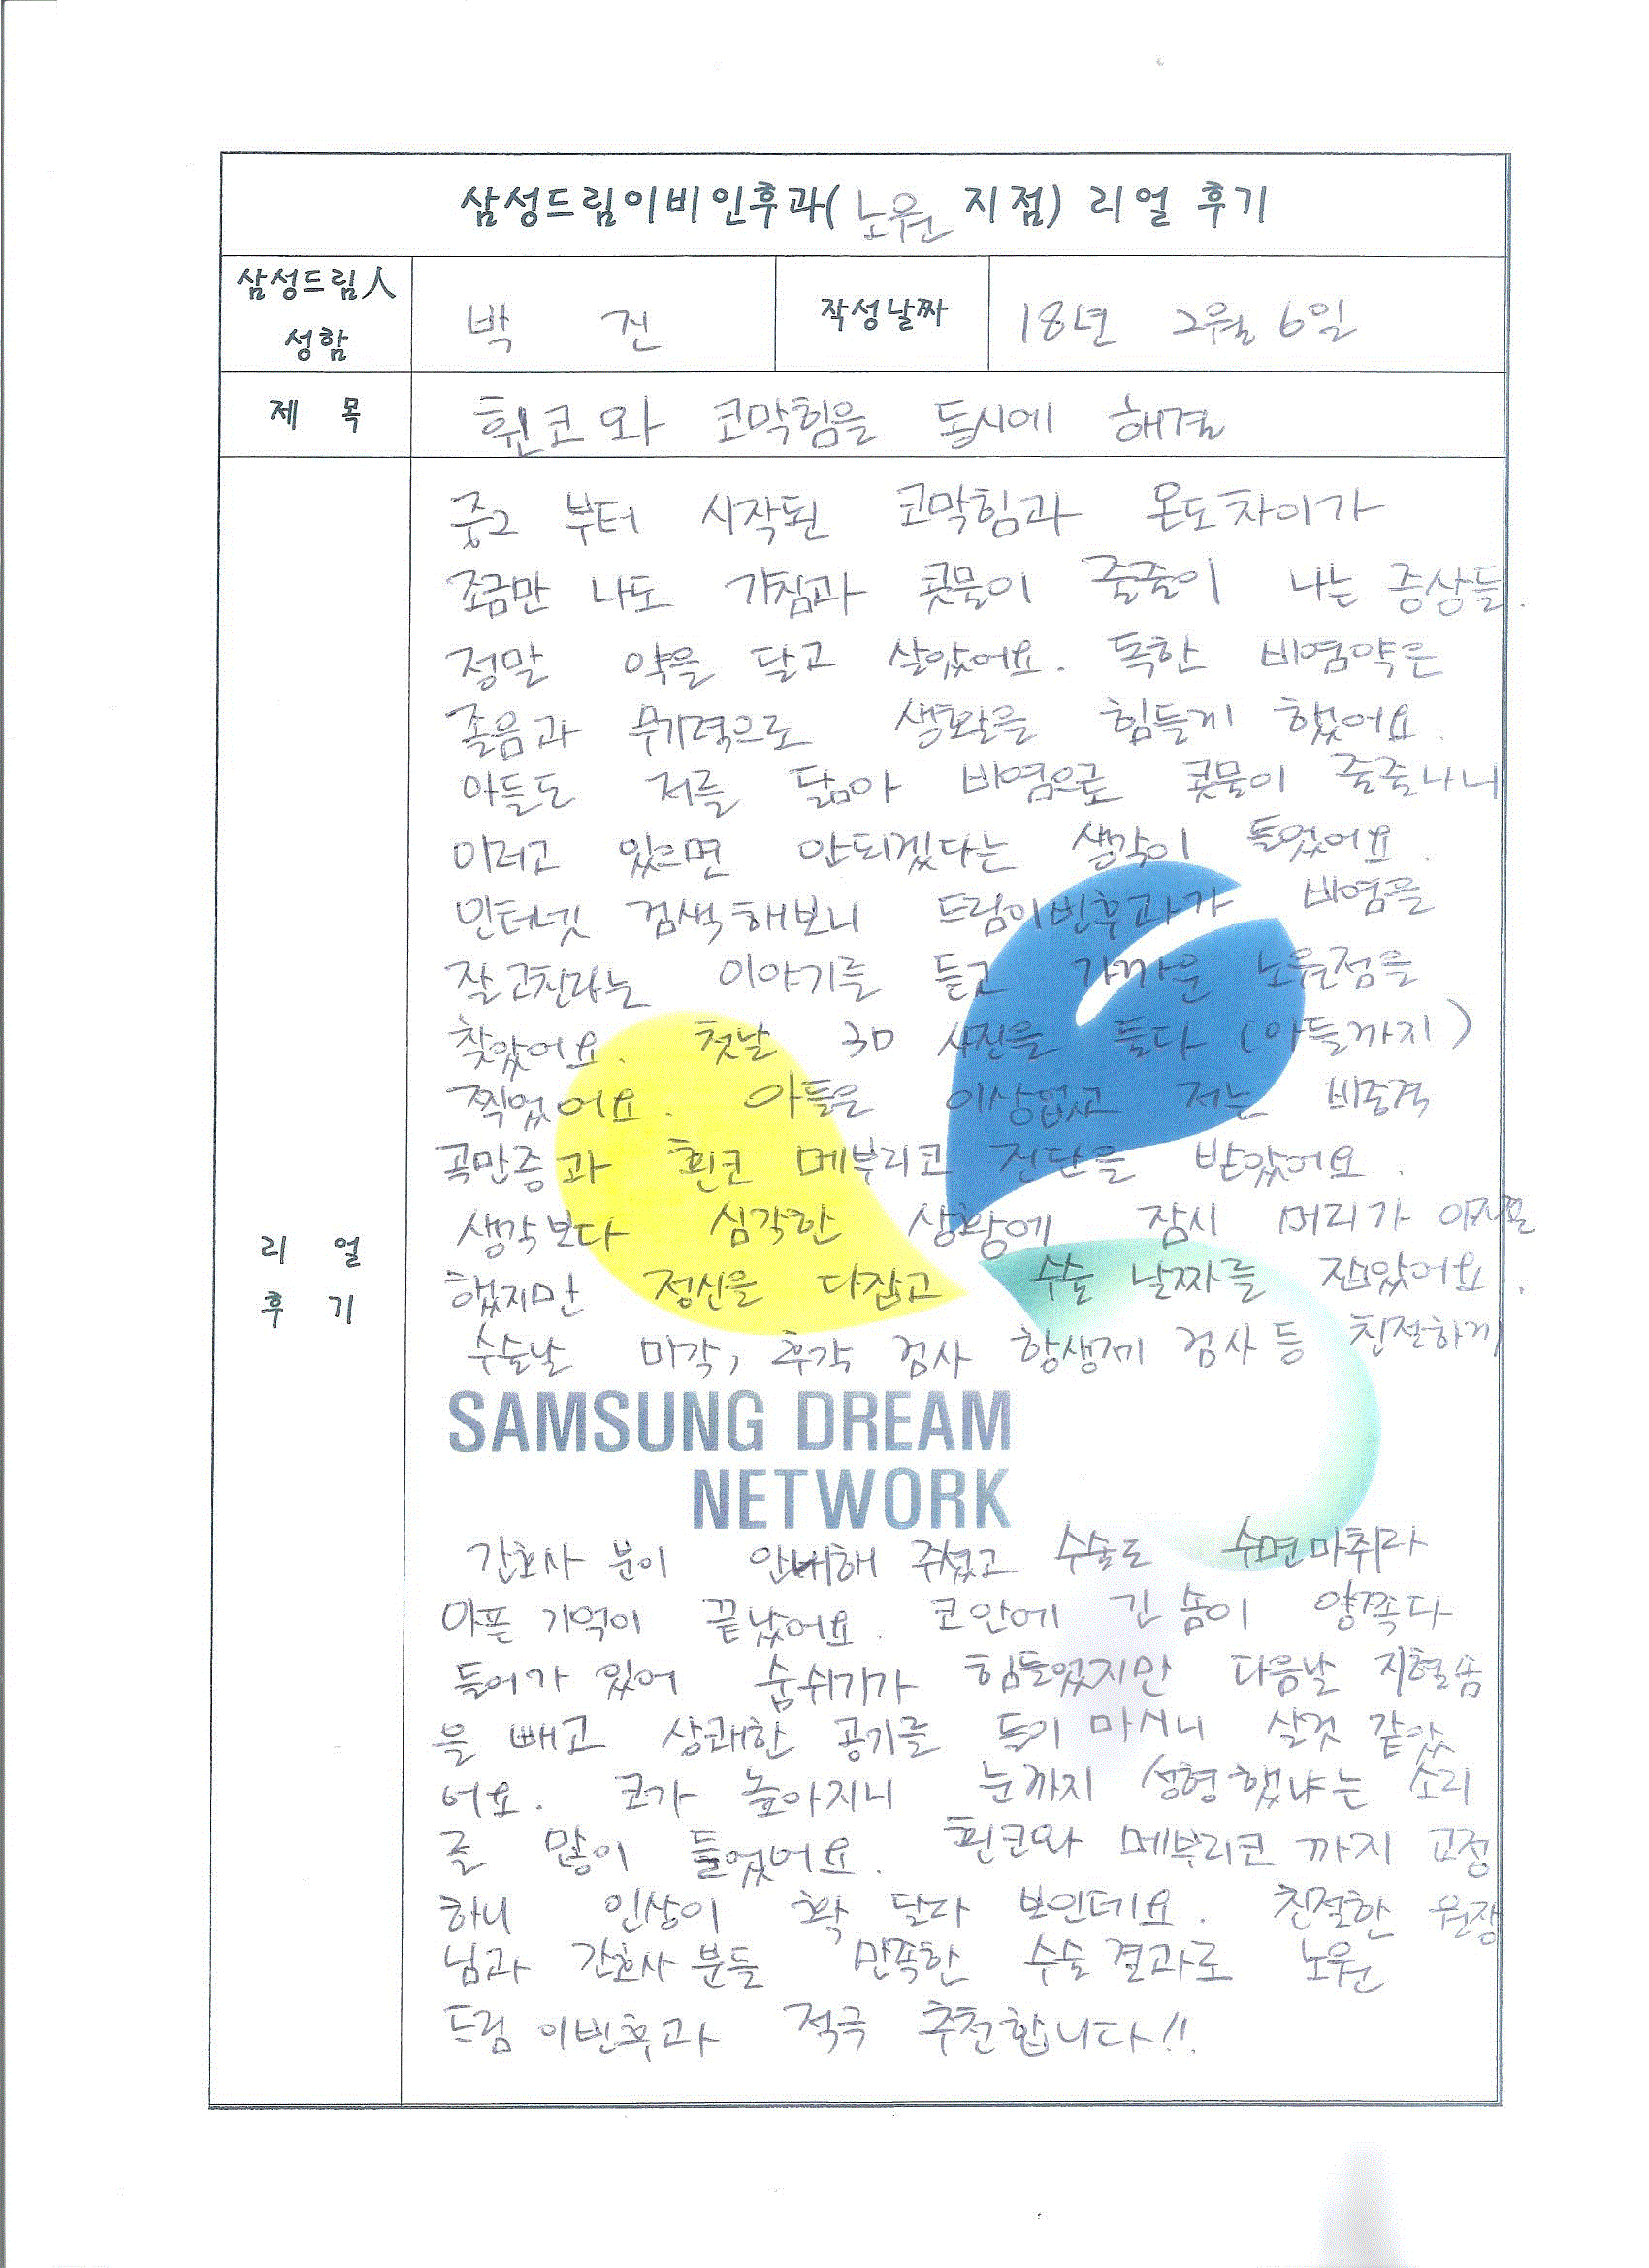 삼성드림이비인후과( 노원 지점) 리얼 후기
삼성드림人 성함
박 건
작성날짜
18년 2월 6일
제 목
휜코와 코막힘을 동시에 해결
리 얼
후 기
중2 부터 시작된 코막힘과 온도차이가
조금만 나도 기침과 콧물이 줄줄이 나는 증상들.
정말 약을 달고 살았어요. 독한 비염약은
졸음과 무기력으로 생활을 힘들게 했어요.
아들도 저를 닮아 비염으로 콧물이 줄줄나니
이러고 있으면 안되겠다는 생각이 들었어요.
인터넷 검색해보니 드림이빈후과가 비염을
잘고친다는 이야기를 듣고 가까운 노원점을
찾았어요. 첫날 3D 사진을 둘다 (아들까지)
찍었어요. 아들은 이상없고 저는 비중격
곡만증과 휜코 메부리코 진단을 받았어요.
생각보다 심각한 상황에 잠시 머리가
했지만 정신을 다잡고 수술 날짜를 잡았어요.
수술날 미각, 후각 검사 항생제 검사 등 친절하게
SAMSUNG DREAM
NETWORK
간호사 분이 안내해 주셨고 수술도 수면마취라
아픈 기억이 끝났어요. 코안에 긴 솜이 양쪽다
들어가 있어 숨쉬기가 힘들었지만 다음날 지혈솜
을 빼고 상쾌한 공기를 들이 마시니 살것 같았
어요. 코가 높아지니 눈까지 성형했냐는 소리
를 많이 들었어요. 휜코와 메부리코 까지 교정
하니 인상이 확 달라 보인데요. 친절한 원장
님과 간호사 분들 만족한 수술 결과로 노원
드림 이빈후과 적극 추천합니다!!